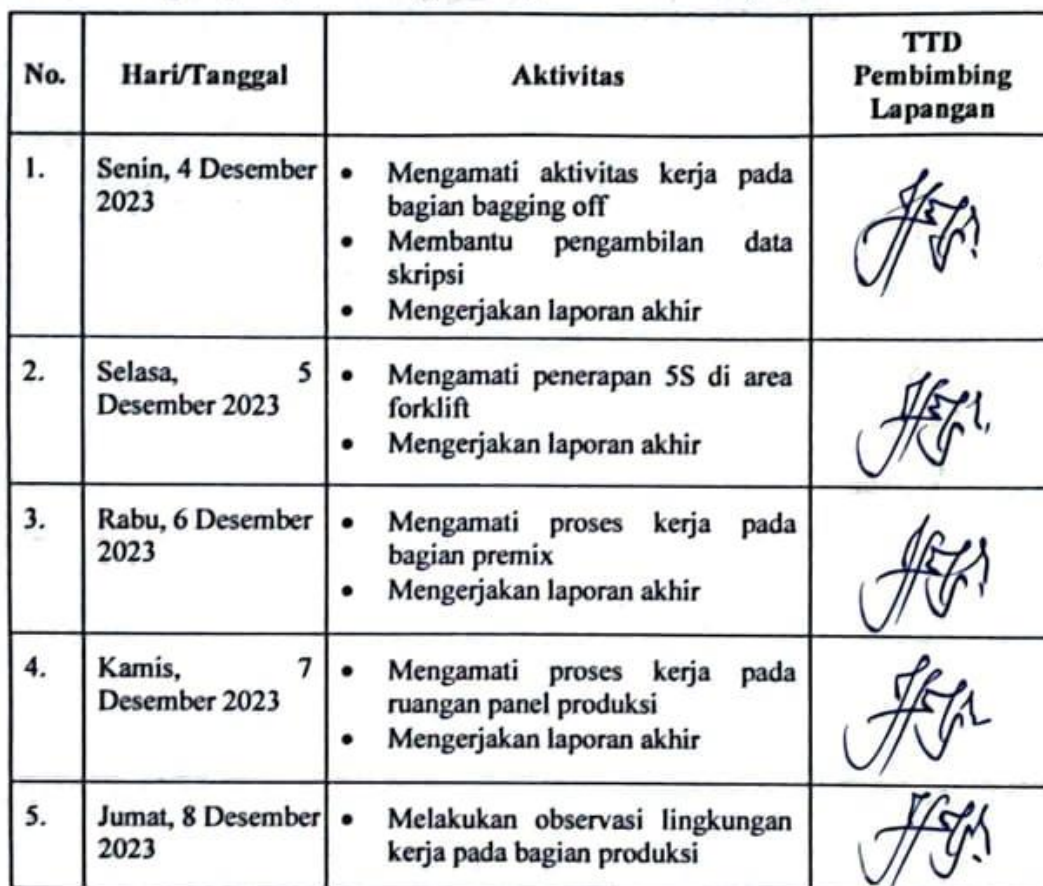 No. Hari/Tanggal Aktivitas TTD
Pembimbing
Lapangan
1. Senin, 4 Desember
2023
• Mengamati aktivitas kerja pada
bagian bagging off
• Membantu pengambilan data
skripsi
• Mengerjakan laporan akhir
2. Selasa, 5
Desember 2023
• Mengamati penerapan 5S di area
forklift
• Mengerjakan laporan akhir
3. Rabu, 6 Desember
2023
• Mengamati proses kerja pada
bagian premix
• Mengerjakan laporan akhir
4. Kamis, 7
Desember 2023
• Mengamati proses kerja pada
ruangan panel produksi
• Mengerjakan laporan akhir
5. Jumat, 8 Desember
2023
• Melakukan observasi lingkungan
kerja pada bagian produksi